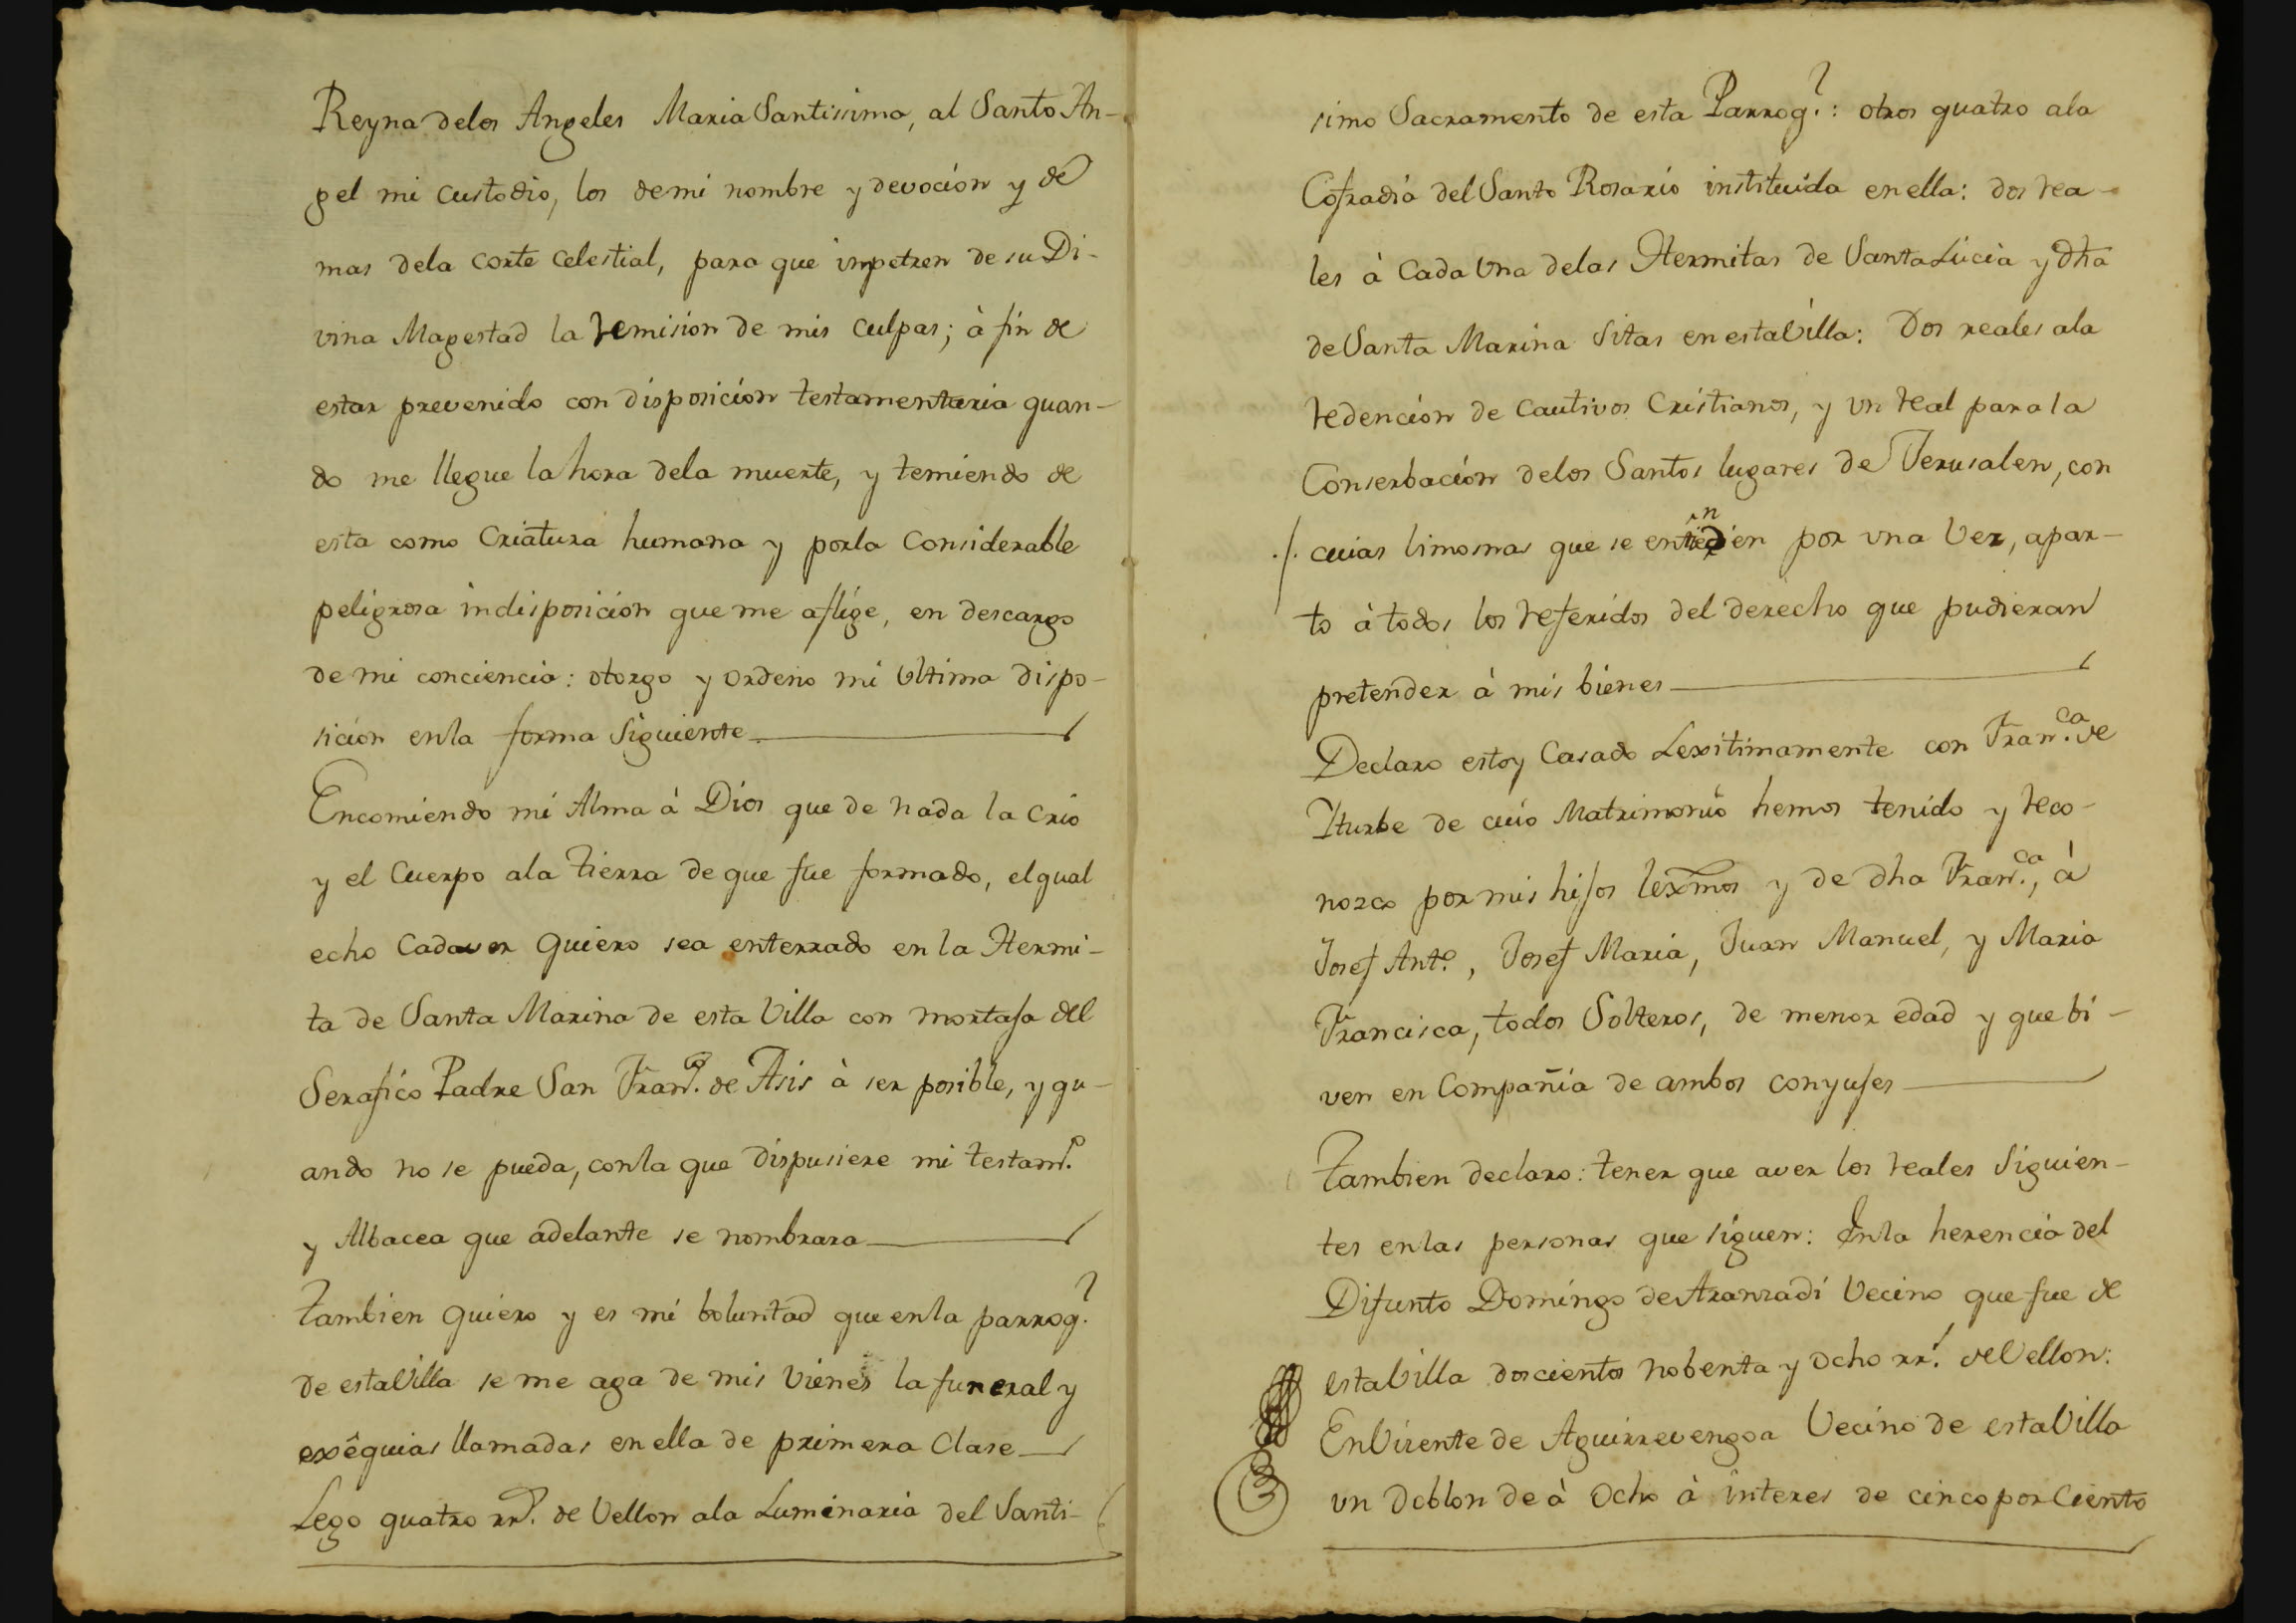 Reyna delos Angeles Maria Santissima, al Santo An-
gel mi custodio, los de mi nombre y devoción y de
mas dela corte celestial, para que impetren de su Di-
vina Magestad la remision de mis culpas; à fin de
estar prevenido con disposición testamentaria quan-
do me llegue la hora dela muerte, y temiendo de
esta como Criatura humana y porla Considerable
peligrosa indisposición que me aflige, en descargo
de mi conciencia: otorgo y ordeno mi Ultima dispo-
sición enla forma Siguiente
Encomiendo mi Alma à Dios que de nada la crió
y el Cuerpo ala tierra de que fue formado, elqual
echo Cadaver quiero sea enterrado en la Hermi-
ta de Santa Marina de esta Villa con mortaja del
Serafico Padre San Fran.co de Asis à ser posible, y qu-
ando no se pueda, conla que dispusiere mi testam.o
y Albacea que adelante se nombrara
Tambien quiero y es mi boluntad que enla parroq.l
de esta Villa se me aga de mis Vienes la funeral y
exêquias llamadas en ella de primera Clase
Lego quatro rr.s de Vellon ala Luminaria del Santi-
simo Sacramento de esta Parroq.l: otros quatro ala
Cofradia del Santo Rosario instituida en ella: dos rea-
les à Cada Una delas Hermitas de Santa Lucia y dha
de Santa Marina Sitas en esta Villa: Dos reales ala
redención de Cautivos Cristianos, y vn real para la
Conserbación delos Santos lugares de Jerusalen, con
./. cuias limosnas que se entienden por vna Vez, apar-
to à todos los referidos del derecho que pudieran
pretender à mis bienes
Declaro estoy Casado Lexitimamente con Fran.ca de
Yturbe de cuio Matrimonio hemos tenido y reco-
nozco por mis hijos lexmos y de dha Fran.ca, à
Josef Ant.o, Josef Maria, Juan Manuel, y Maria
Francisca, todos Solteros, de menor edad y que bi-
ven en Compañia de ambos conyujes
Tambien declaro: tener que aver los reales Siguien-
tes enlas personas que siguen: Enla herencia del
Difunto Domingo de Aranzadi Vecino que fue de
esta Villa doscientos nobenta y ocho rr.s de Vellon:
En Visente de Aguirrevengoa Vecino de esta Villa
un doblon de à ocho à interes de cinco por Ciento